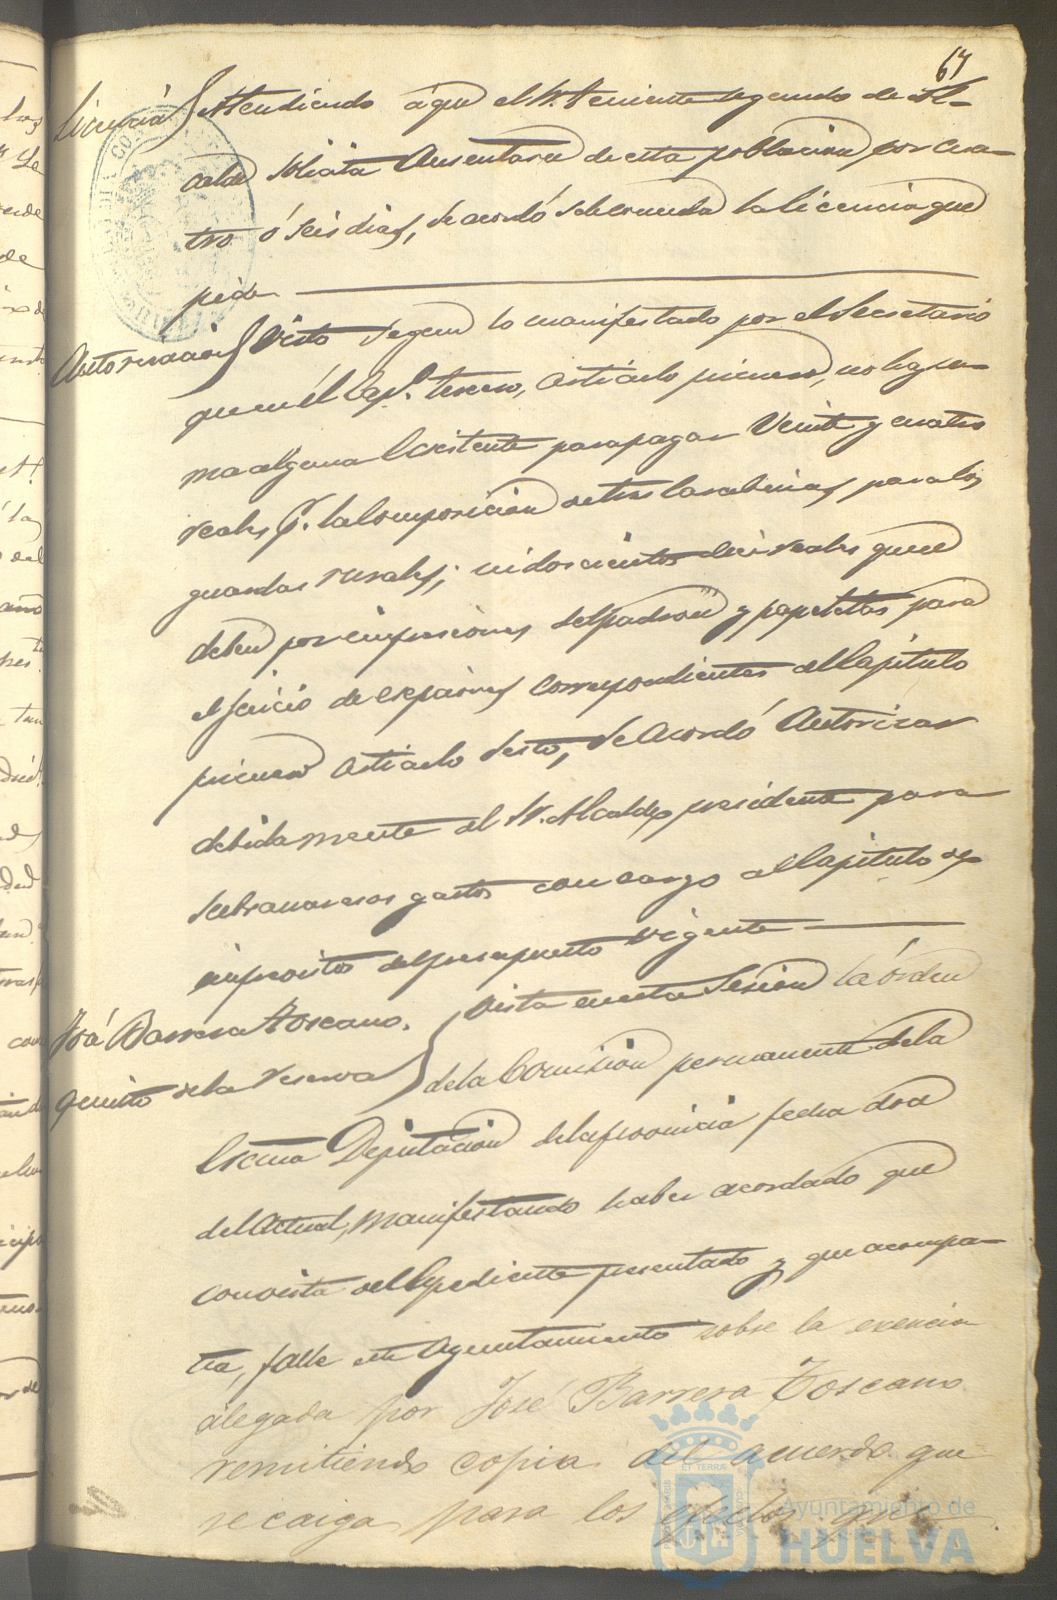 67
Licencia } Atendiendo á que el Sr. Teniente segundo de Al-
calde solicita Ausentarse de esta poblacion por cua-
tro ó seis dias, se acordó se le conceda la licencia que
pide
Autorizacion } Visto segun lo manifestado por el Secretario
que en el Cap.º tercero, articulo primero, no hay su-
ma alguna Existente para pagar Veinte y cuatro
reales p.r la Composicion de tres Carabinas para los
guardas rurales; ni doscientos diez reales que se
deben por impresiones del padron y papeletas para
el juicio de esepciones correspondientes al Capitulo
primero Articulo Sesto, se Acordó Autorizar
debidamente al Sr. Alcalde presidente para
sufragar esos gastos con cargo al Capitulo de
imprevistos del presupuesto vigente
José Barrera Toscano. } Vista en esta Sesion la órden
Quinto de la reserva } de la Comision permanente de la
Escma Diputacion de la provincia fecha doce
del Actual, manifestando haber acordado que
con vista del Espediente presentado y que acompa-
ña, falle este Ayuntamiento sobre la exencion
alegada por José Barrera Toscano
remitiendo copia del acuerdo que
recaiga para los efectos que
Ayuntamiento de
HUELVA